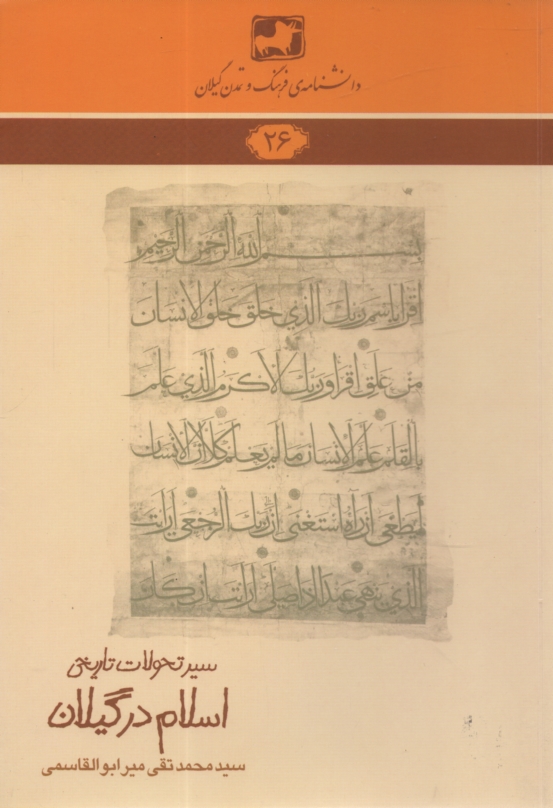 دانشنامه‌ی فرهنگ و تمدن گیلان
۲۶
بسم الله الرحمن الرحيم
اقرا باسم ربك الذي خلق خلق الانسان
من علق اقرا وربك الاكرم الذي علم
بالقلم علم الانسان ما لم يعلم كلا ان الانسان
ليطغى ان راه استغنى ان الى ربك الرجعى ارايت
الذي ينهى عبدا اذا صلى ارايت ان كان
سیر تحولات تاریخی
اسلام در گیلان
سید محمد تقی میر ابوالقاسمی